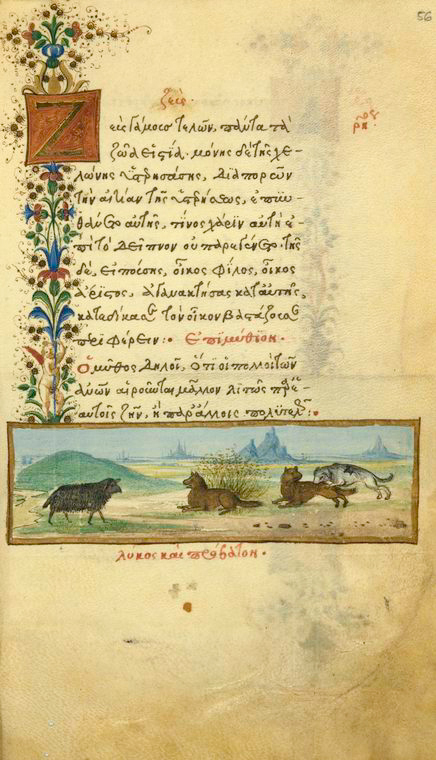 56
Ζεύς.
Ζεὺς γάμους τελῶν, πάντα τὰ
ζῶα εἱστία. μόνης δὲ τῆς χε-
λώνης ὑστερησάσης, διαπορῶν
τὴν αἰτίαν τῆς ὑστερήσεως, ἐπυν-
θάνετο αὐτῆς, τίνος χάριν αὐτὴ ἐ-
πὶ τὸ δεῖπνον οὐ παρεγένετο. τῆς
δὲ, εἰπούσης, οἶκος φίλος, οἶκος
ἄριστος, ἀγανακτήσας κατ' αὐτῆς,
κατεδίκασε τὸν οἶκον βαστάζουσαν
περιφέρειν: Ἐπιμύθιον.
Ὁ μῦθος δηλοῖ, ὅτι οἱ πολλοὶ τῶν
ἀνθρώπων αἱροῦνται μᾶλλον λιτῶς παρ' ἑ-
αυτοῖς ζῆν, ἢ παρ' ἄλλοις πολυτελῶς:
λύκος καὶ πρόβατον.